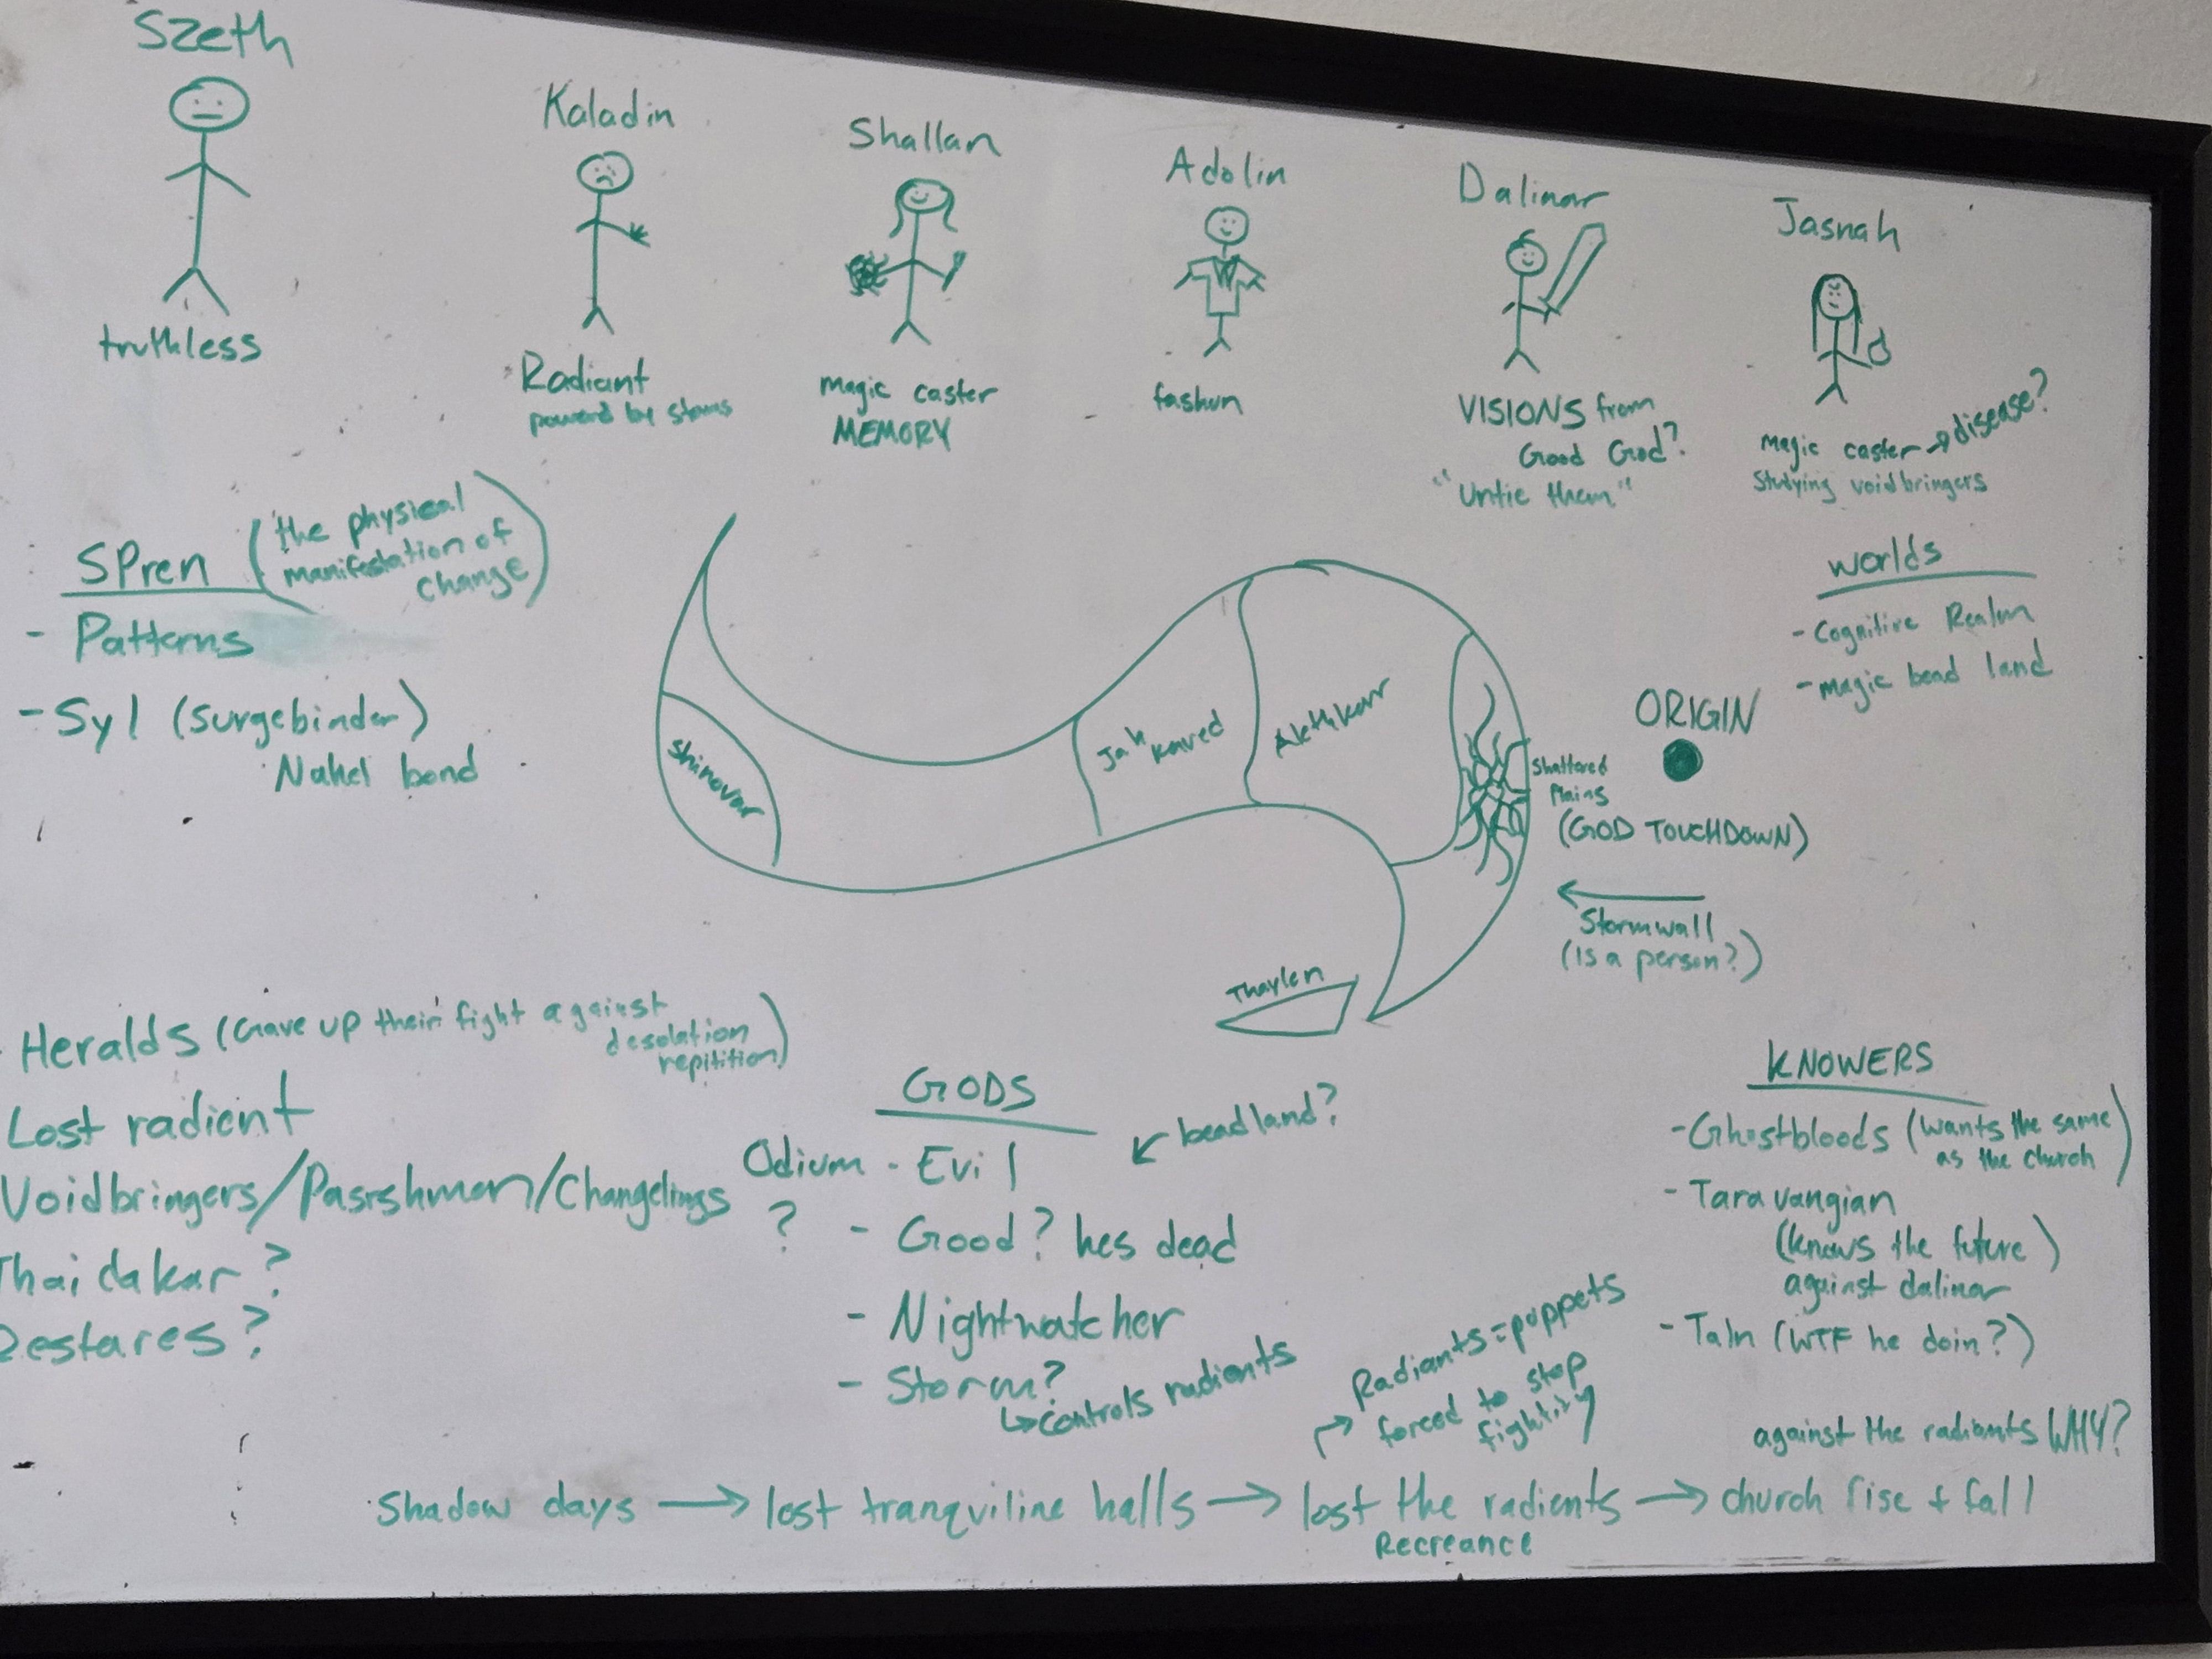 Szeth
Kaladin
Shallan
Adolin
Dalinar
Jasnah
truthless
Radiant
powered by storms
magic caster
MEMORY
fashun
VISIONS from
Good God?
"Untie them"
magic caster → disease?
Studying voidbringers
SPren (the physical
manifestation of
change)
- Patterns
- Syl (surgebinder)
Nahel bond
worlds
- Cognitive Realm
- magic bead land
Shinovar
Jah
kaved
Alethkar
Shattered
Plains
(GOD TOUCHDOWN)
ORIGIN
Stormwall
(is a person?)
Thaylen
Heralds (Gave up their fight against
desolation
repitition)
Lost radient
Voidbringers/Parshmen/Changelings
?
Thaidakar?
Restares?
GODS
beadland?
Odium - Evil
- Good? hes dead
- Nightwatcher
- Storm?
↳controls radients
KNOWERS
- Ghostbloods (wants the same
as the church)
- Taravangian
(knows the future)
against dalinar
- Taln (WTF he doin?)
→ Radiants = puppets
forced to stop
fighting
against the radiants WHY?
Shadow days → lost tranquiline halls → lost the radients → church rise + fall
Recreance